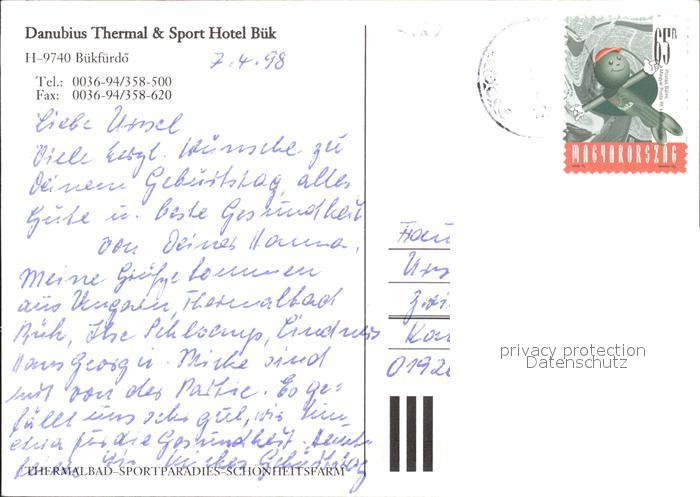 Danubius Thermal & Sport Hotel Bük
H–9740 Bükfürdő
7.4.98
Tel.: 0036-94/358-500
Fax: 0036-94/358-620
Liebe Urssel
Viele herzl. Wünsche zu
Deinem Geburtstag, alles
Gute u. beste Gesundheit
von Deiner Hanna.
Meine Grüße kommen
aus Ungarn, Thermalbad
Bük, Ilse
Hans Georg u. Micke sind
mit von der Partie. Es ge-
fällt uns sehr gut, wir tun
für die Gesundheit.
Geburtstag
THERMALBAD–SPORTPARADIES–SCHÖNHEITSFARM
65Ft
MAGYARORSZÁG
Frau
Urs
0192
privacy protection
Datenschutz